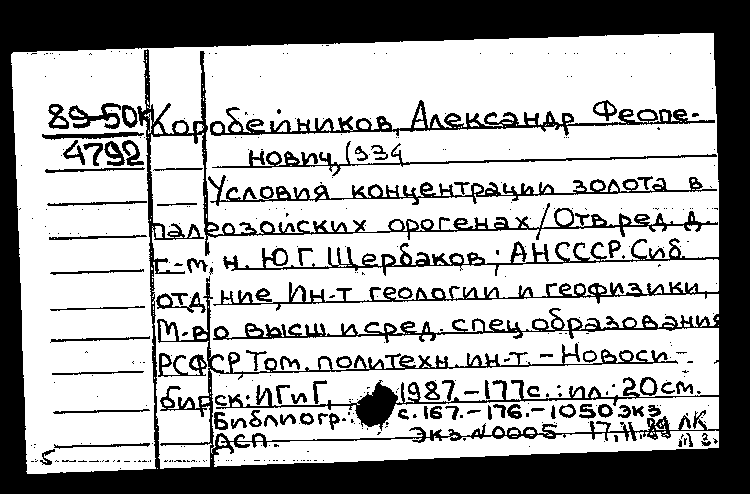 89-50к Коробейников, Александр Феопе-
4792 нович, 1934
Условия концентрации золота в
палеозойских орогенах / Отв. ред. д.
г.-м. н. Ю.Г. Щербаков; АН СССР. Сиб
отд-ние, Ин-т геологии и геофизики,
М-во высш. и сред. спец. образования
РСФСР, Том. политехн. ин-т. - Новоси-
бирск: ИГиГ, 1987. - 177с.: ил.; 20см.
Библиогр.: с. 167.-176. - 1050 экз
ДСП. Экз. №0005 17.11.89 ЛК
5